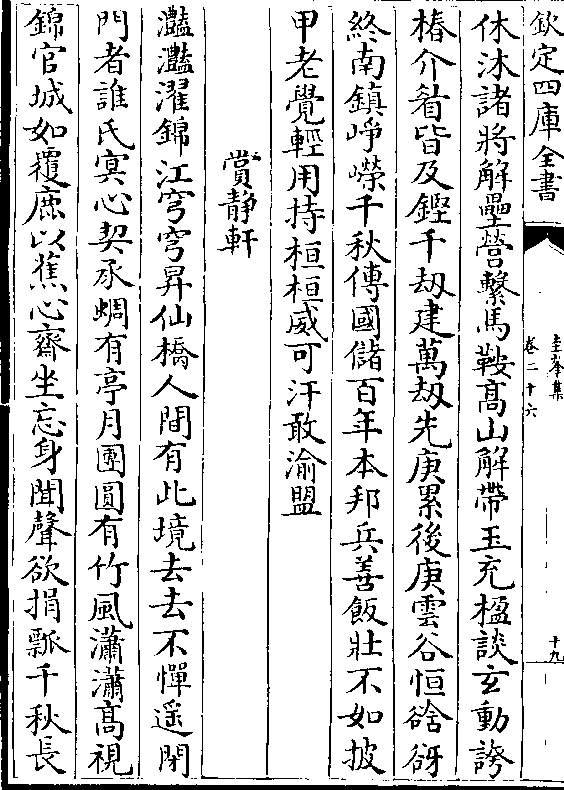 欽定四庫全書
圭峯集
卷二十六
十九
休沐諸將解壘營繫馬鞍高山解帶玉充楹談玄動誇
椿介眉皆及鏗千刼建萬刼先庚累後庚雲谷恒谽谺
終南鎮崢嶸千秋傳國儲百年本邦兵善飯壯不如披
甲老覺輕用持桓桓威可汗敢渝盟
賞静軒
灩灩濯錦江穹穹昇仙橋人間有此境去去不憚遥閉
門者誰氏㝠心契承蜩有亭月團圓有竹風瀟瀟高視
錦官城如覆鹿以蕉心齋坐忘身聞聲欲捐瓢千秋長